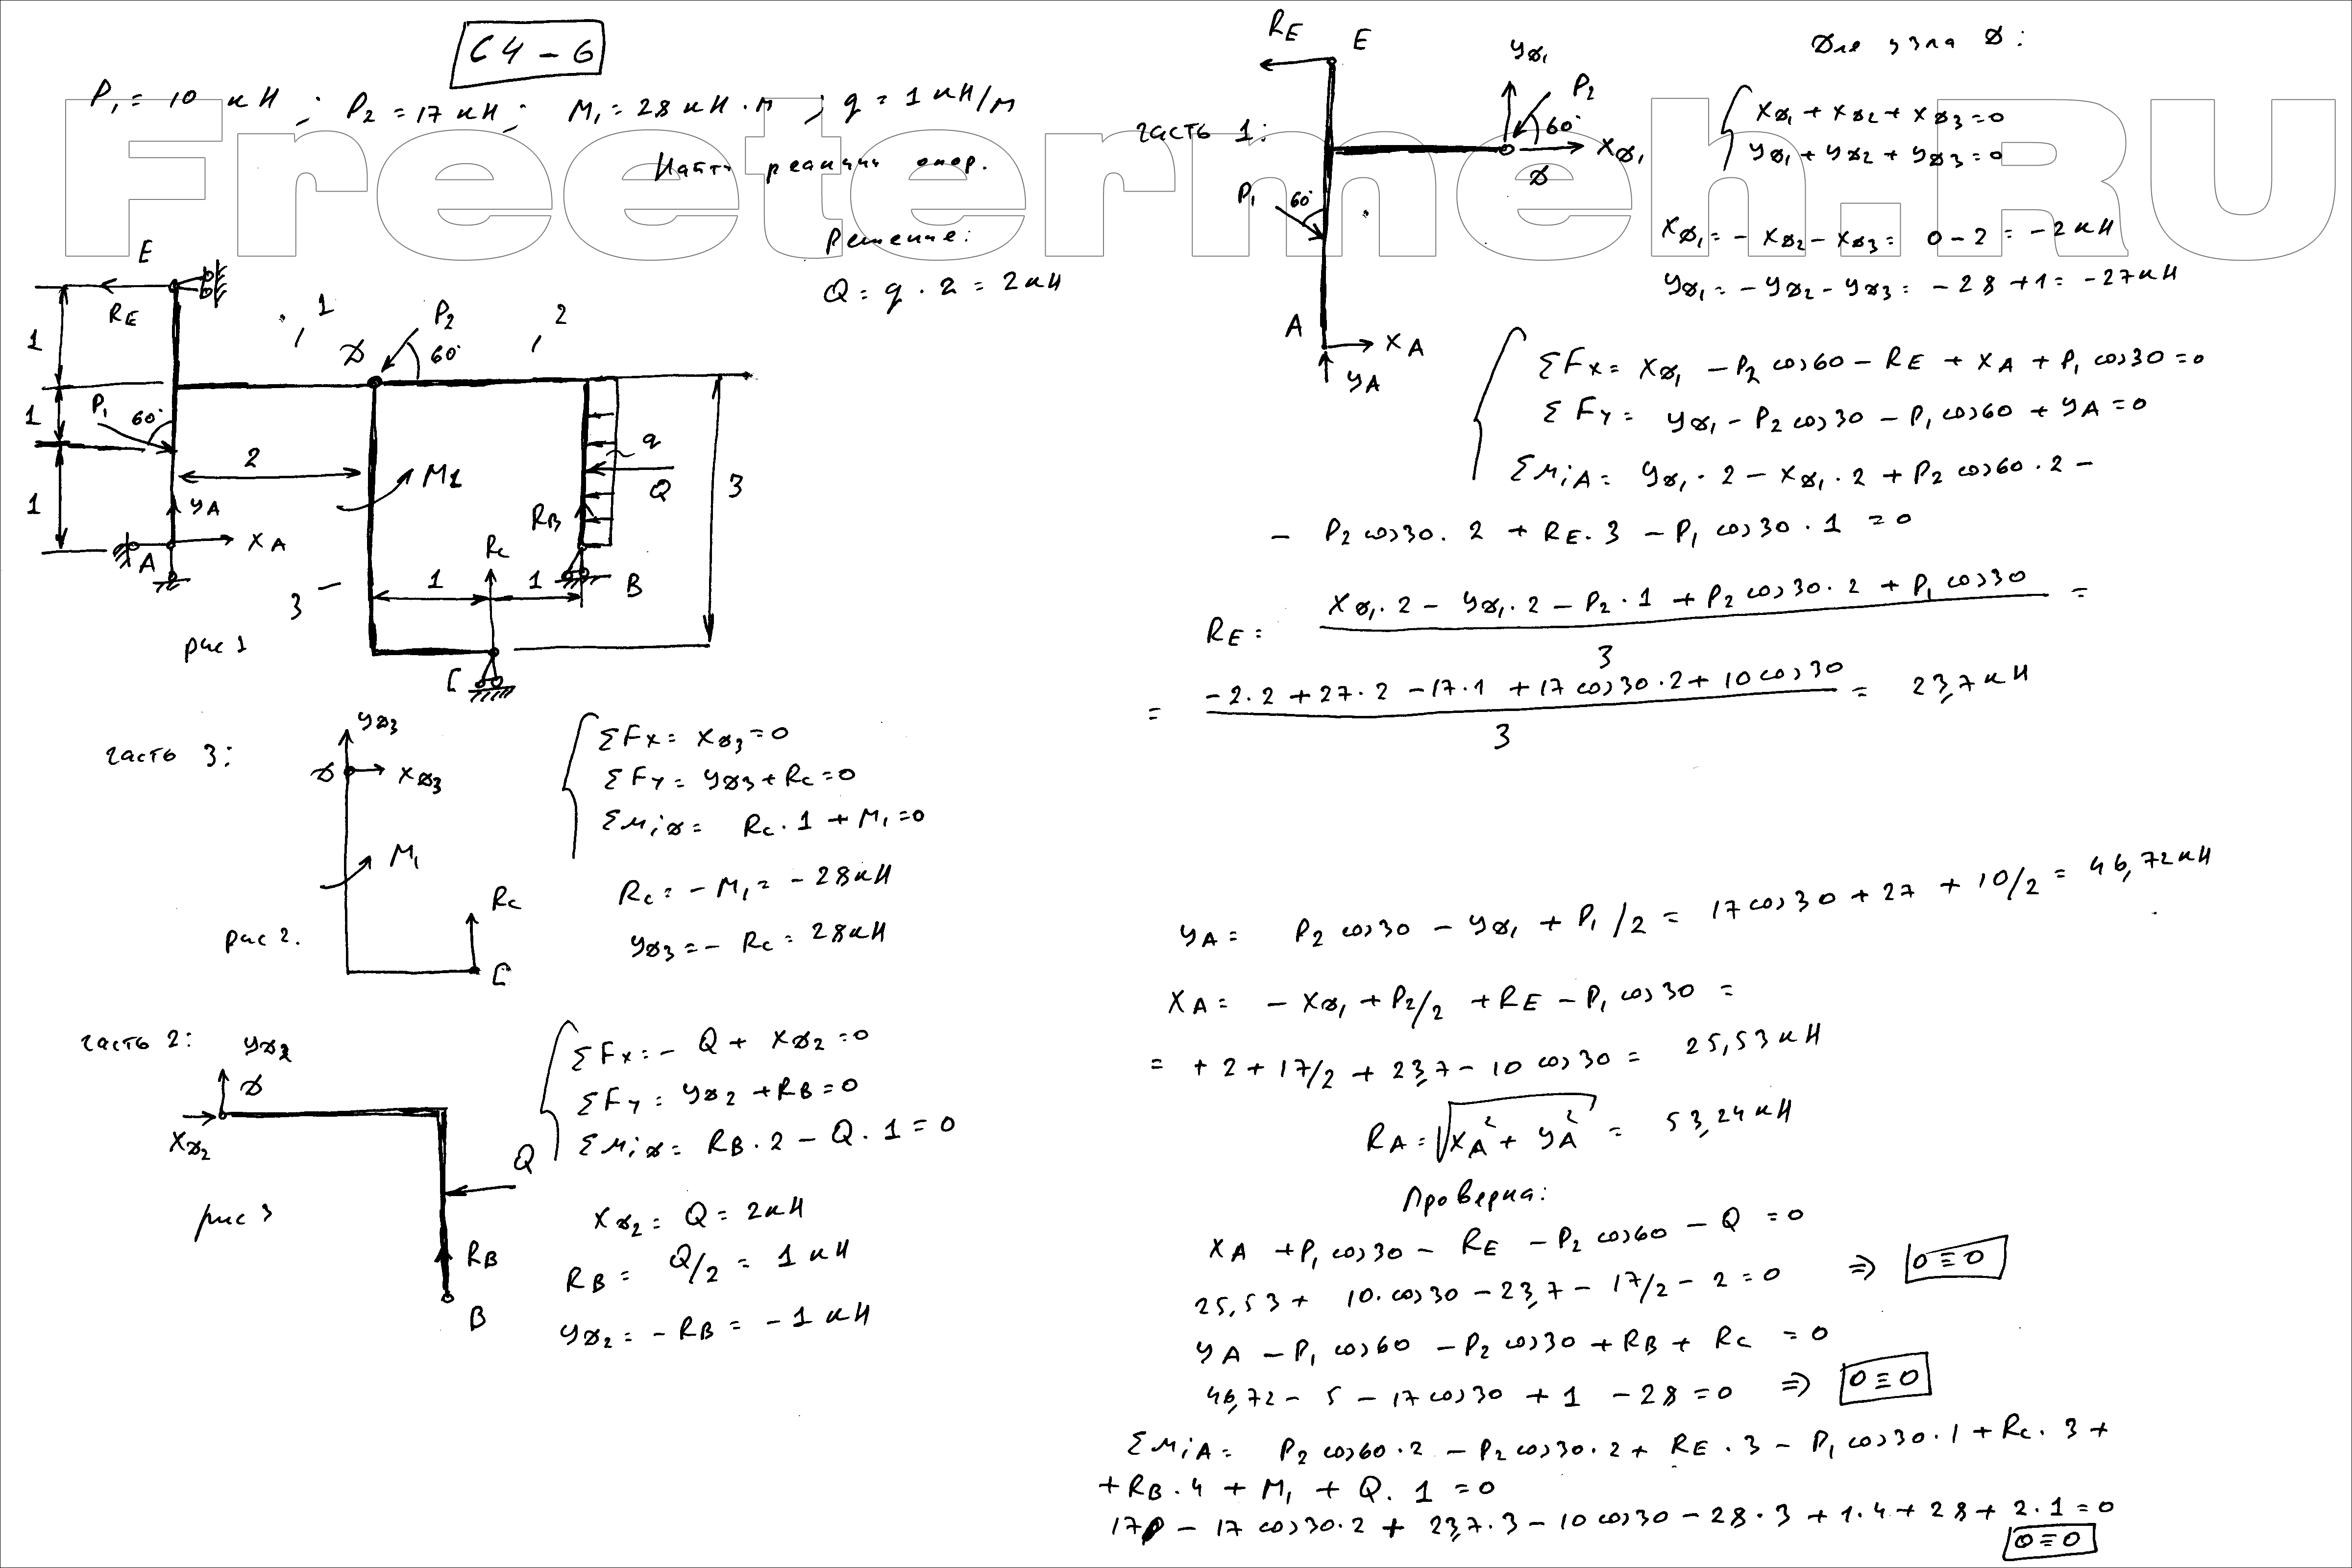 С4-6
P₁ = 10 кН ; P₂ = 17 кН ; M₁ = 28 кН·м ; q = 1 кН/м
Freetermeh.RU
Найти реакции опор.
Решение:
Q = q · 2 = 2 кН
E
R_E
1
1
1
P₁
60°
2
y_A
x_A
A
1
D
P₂
60°
2
M1
q
Q
3
R_B
R_C
1
1
B
3
C
рис 1
часть 3:
y_D3
D
x_D3
M₁
R_C
C
рис 2.
ΣFx = x_D3 = 0
ΣFy = y_D3 + R_C = 0
ΣM_iD = R_C · 1 + M₁ = 0
R_C = - M₁ = - 28 кН
y_D3 = - R_C = 28 кН
часть 2:
y_D2
D
x_D2
Q
R_B
B
рис 3
ΣFx = - Q + x_D2 = 0
ΣFy = y_D2 + R_B = 0
ΣM_iD = R_B · 2 - Q · 1 = 0
x_D2 = Q = 2 кН
R_B = Q/2 = 1 кН
y_D2 = - R_B = - 1 кН
часть 1:
R_E
E
y_D1
P₂
60°
x_D1
D
P₁
60°
A
x_A
y_A
Для узла D:
x_D1 + x_D2 + x_D3 = 0
y_D1 + y_D2 + y_D3 = 0
x_D1 = - x_D2 - x_D3 = 0 - 2 = - 2 кН
y_D1 = - y_D2 - y_D3 = - 28 + 1 = - 27 кН
ΣFx = x_D1 - P₂ cos60 - R_E + x_A + P₁ cos30 = 0
ΣFy = y_D1 - P₂ cos30 - P₁ cos60 + y_A = 0
ΣM_iA = y_D1 · 2 - x_D1 · 2 + P₂ cos60 · 2 -
- P₂ cos30 · 2 + R_E · 3 - P₁ cos30 · 1 = 0
R_E = (x_D1 · 2 - y_D1 · 2 - P₂ · 1 + P₂ cos30 · 2 + P₁ cos30) / 3 =
= (- 2 · 2 + 27 · 2 - 17 · 1 + 17 cos30 · 2 + 10 cos30) / 3 = 23,7 кН
y_A = P₂ cos30 - y_D1 + P₁/2 = 17 cos30 + 27 + 10/2 = 46,72 кН
x_A = - x_D1 + P₂/2 + R_E - P₁ cos30 =
= + 2 + 17/2 + 23,7 - 10 cos30 = 25,53 кН
R_A = √(x_A² + y_A²) = 53,24 кН
Проверка:
x_A + P₁ cos30 - R_E - P₂ cos60 - Q = 0
25,53 + 10 · cos30 - 23,7 - 17/2 - 2 = 0 ⇒ 0 ≡ 0
y_A - P₁ cos60 - P₂ cos30 + R_B + R_C = 0
46,72 - 5 - 17 cos30 + 1 - 28 = 0 ⇒ 0 ≡ 0
ΣM_iA = P₂ cos60 · 2 - P₂ cos30 · 2 + R_E · 3 - P₁ cos30 · 1 + R_C · 3 +
+ R_B · 4 + M₁ + Q · 1 = 0
17 - 17 cos30 · 2 + 23,7 · 3 - 10 cos30 - 28 · 3 + 1 · 4 + 28 + 2 · 1 = 0
0 ≡ 0